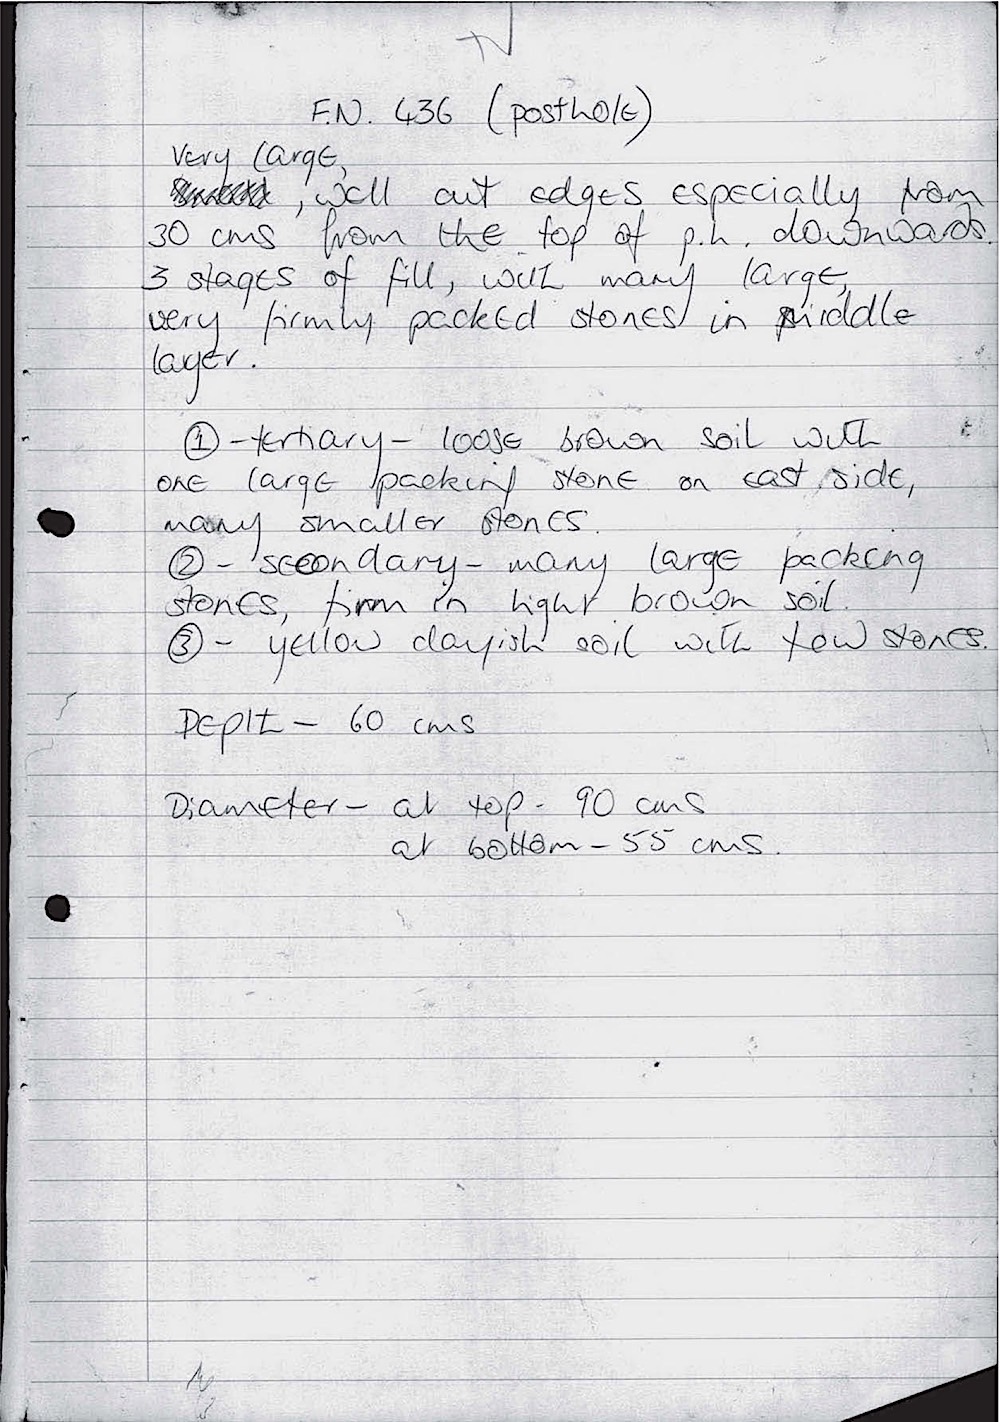 F.N. 436 (posthole)
Very large,
, well cut edges especially from
30 cms from the top of p.h. downwards.
3 stages of fill, with many large,
very firmly packed stones in middle
layer.
① - tertiary - loose brown soil with
one large packing stone on east side,
many smaller stones.
② - secondary - many large packing
stones, firm in light brown soil.
③ - yellow clayish soil with few stones.
Depth - 60 cms
Diameter - at top - 90 cms
at bottom - 55 cms.